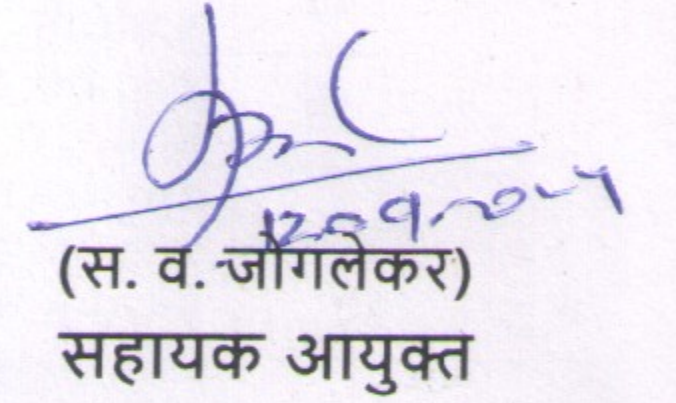 (स. व. जोगलेकर)
सहायक आयुक्त